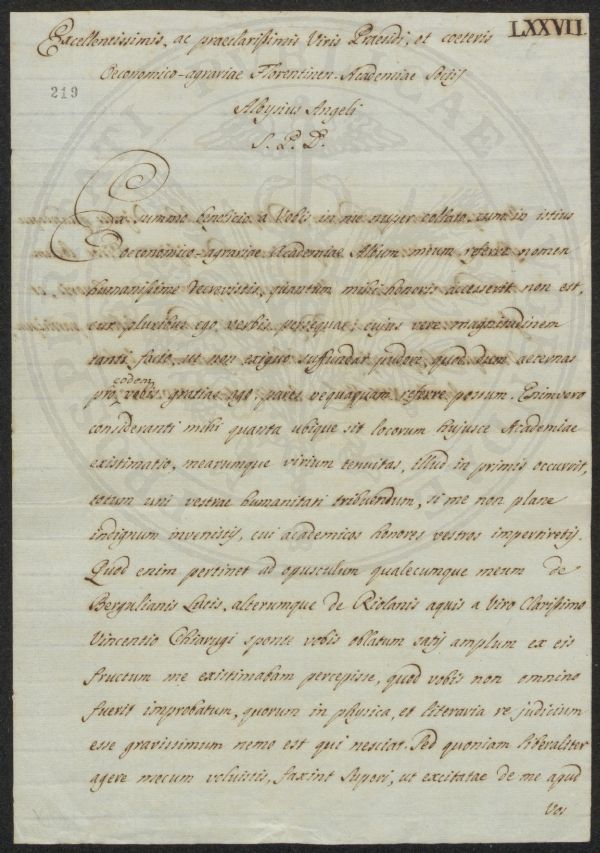 LXXVII
Excellentissimis, ac praeclarissimis Viris Praesidi, et coeteris
Oeconomico-agrariae Florentinen. Academiae Socijs
219
Aloysius Angeli
S. P. D.
Ex summo beneficio a Vobis in me nuper collato, cum in istius
Oeconomico-agrariae Academiae Album meum referre nomen
humanissime decrevistis, quantum mihi honoris accesserit non est,
cur pluribus ego verbis persequar; cujus vere magnitudinem
tanti facio, ut non exiguo suffundar pudore, quod dum aeternas
eodem
pro vobis gratias ago, pares nequaquam referre possum. Enimvero
consideranti mihi quanta ubique sit locorum hujusce Academiae
existimatio, mearumque virium tenuitas, illud in primis occurrit,
totum uni vestrae humanitati tribuendum, si me non plane
indignum invenistis, cui academicos honores vestros impertiretis.
Quod enim pertinet ad opusculum qualecumque meum de
Bergulianis Lacis, alterumque de Riolanis aquis a Viro Clarissimo
Vincentio Chiarugi sponte vobis oblatum satis amplum ex eis
fructum me existimabam percepisse, quod vobis non omnino
fuerit improbatum, quorum in physica, et literaria re judicium
esse gravissimum nemo est qui nesciat. Sed quoniam liberaliter
agere mecum voluistis, faxint Superi, ut excitatae de me apud
Vos